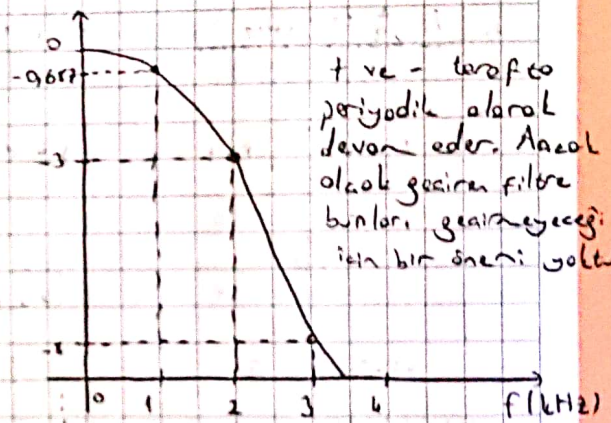 0
-0,687
+ ve - tarafta
periyodik olarak
devam eder. Ancak
alçak geçiren filtre
bunları geçirmeyeceği
için bir önemi yoktu
-3
-8
0 1 2 3 4 f(kHz)